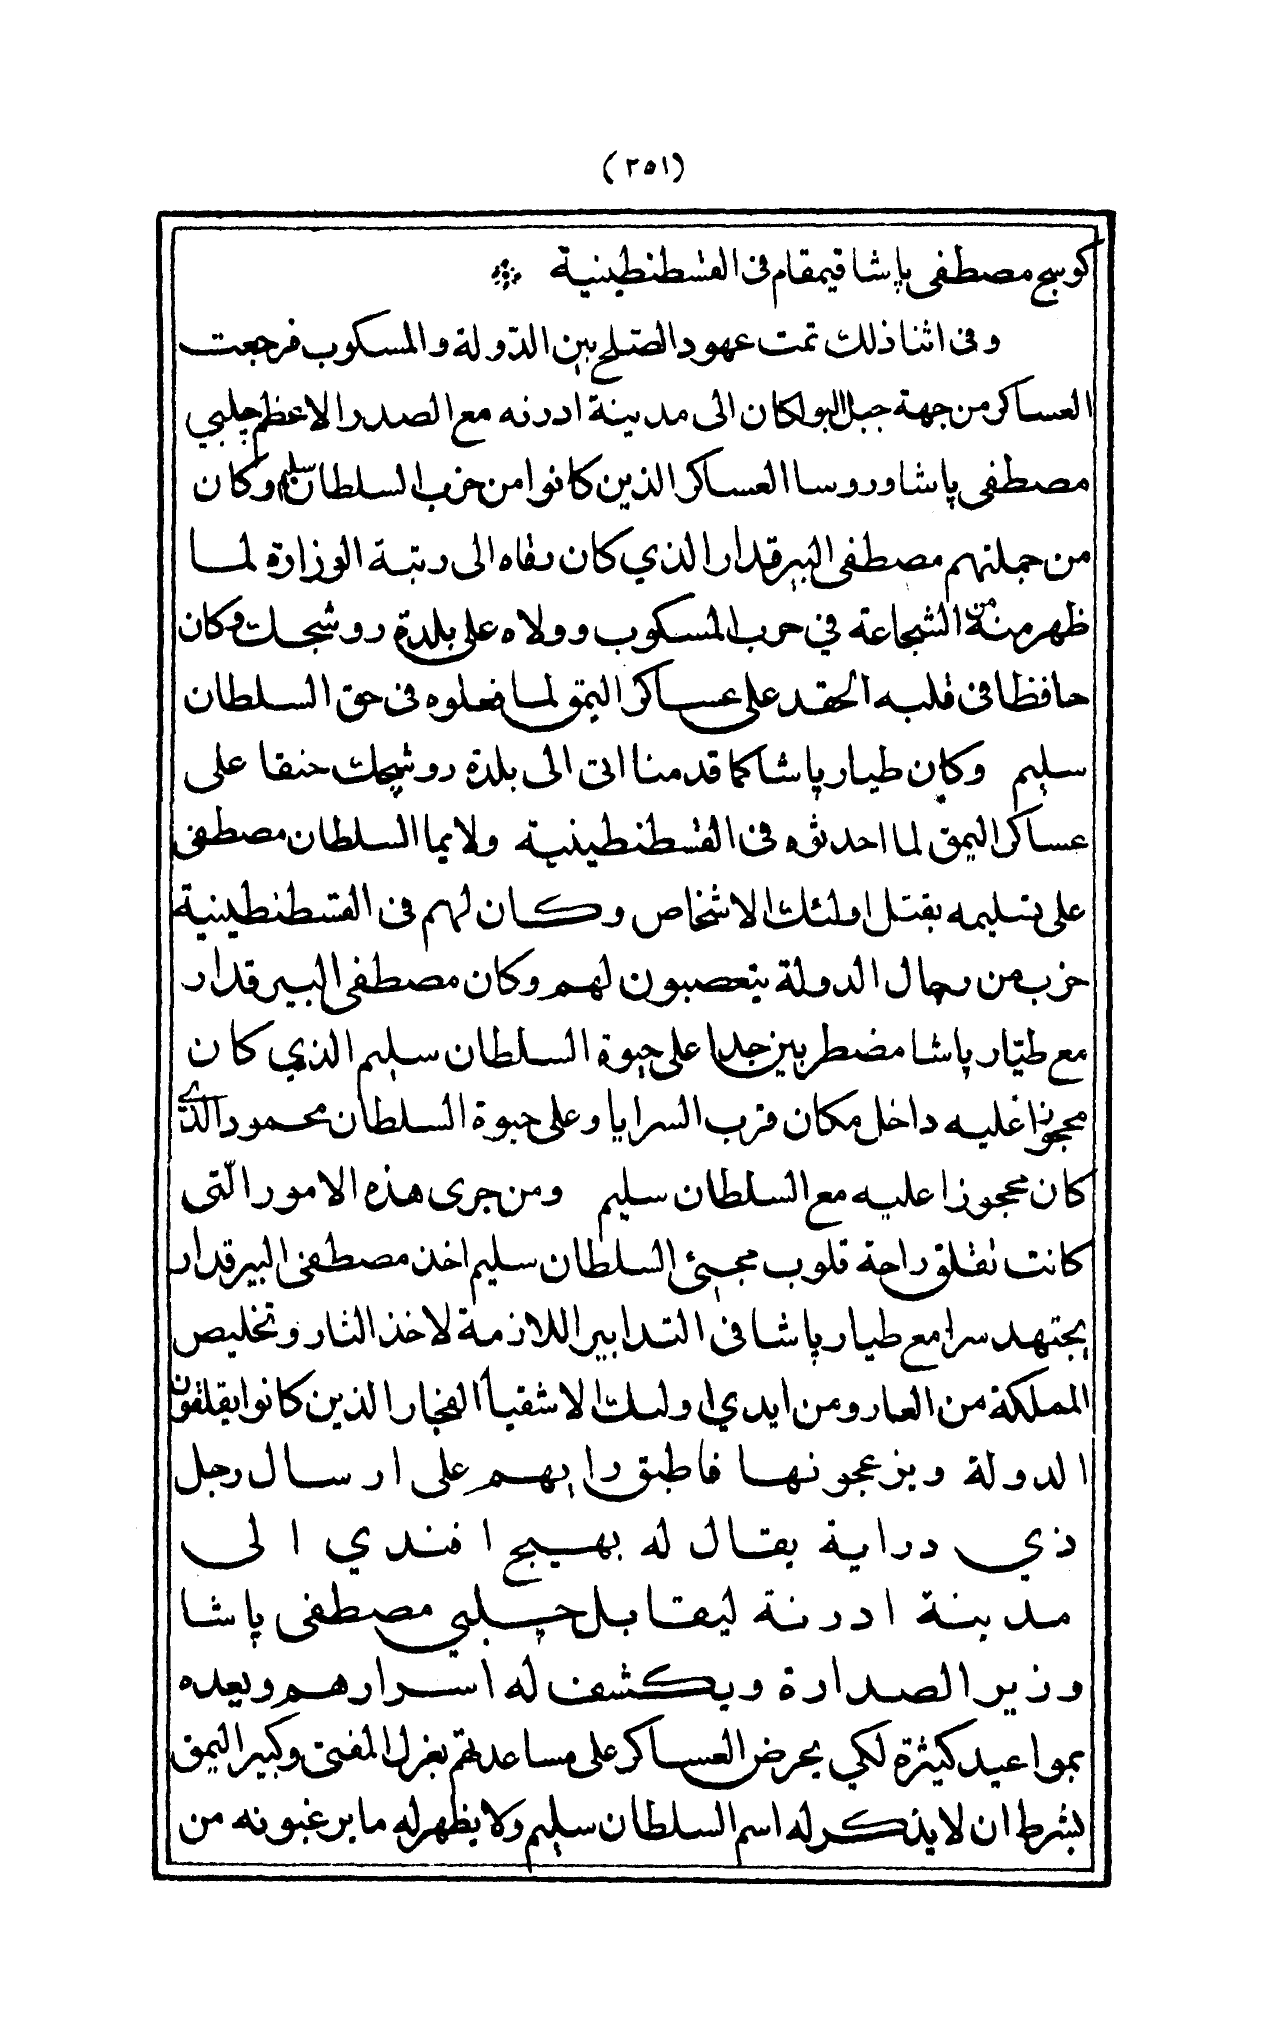 (٢٥١)
كوسج مصطفى پاشا قيمقام فى القسطنطينية ۞
وفى اثنا ذلك تمت عهود الصّلح بين الدّولة والمسكوب فرجعت
العساكر من جهة جبل البولكان الى مدينة ادرنه مع الصدر الاعظم چلبي
مصطفى پاشا وروسا العساكر الذين كانوا من حزب السلطان سليم وكان
من جملتهم مصطفى البيرقدار الذي كان رقاه الى رتبة الوزارة لمـا
ظهر منه من الشجاعة في حرب المسكوب وولاه على بلدة روشجك وكان
حافظا فى قلبه الحقد على عساكر اليمق لما فعلوه فى حق السلطان
سليم وكان طيار پاشا كما قدمنا اتى الى بلدة روشچك حنقا على
عساكر اليمق لما احدثوه فى القسطنطينية ولايما السلطان مصطفى
على تسليمه بقتل اولئك الاشخاص وكان لهم فى القسطنطينية
حزب من رجال الدولة يتعصبون لهم وكان مصطفى البيرقدار
مع طيّار پاشا مضطربين جدا على حيوة السلطان سليم الذي كان
محجوزا عليه داخل مكان قرب السرايا وعلى حيوة السلطان محمود الذي
كان محجوزا عليه مع السلطان سليم ومن جرى هذه الامور الّتى
كانت تقلق راحة قلوب محبئ السلطان سليم اخذ مصطفى البيرقدار
يجتهد سرا مع طيار پاشا فى التدابير اللازمة لاخذ الثار وتخليص
المملكة من العار ومن ايدي اوليك الاشقيأ الفجار الذين كانوا يقلقون
الدولة ويزعجونها فاطبق رايهم على ارسال رجل
ذي دراية يقال له بهيج افندي الى
مدينة ادرنة ليقابل چلبي مصطفى پاشا
وزير الصدارة ويكشف له اسرارهم ويعده
بمواعيد كثيرة لكي يحرض العساكر على مساعدتهم بعزل المفتى وكبير اليمق
بشرط ان لا يذكر له اسم السلطان سليم ولا يظهر له ما يرغبونه من